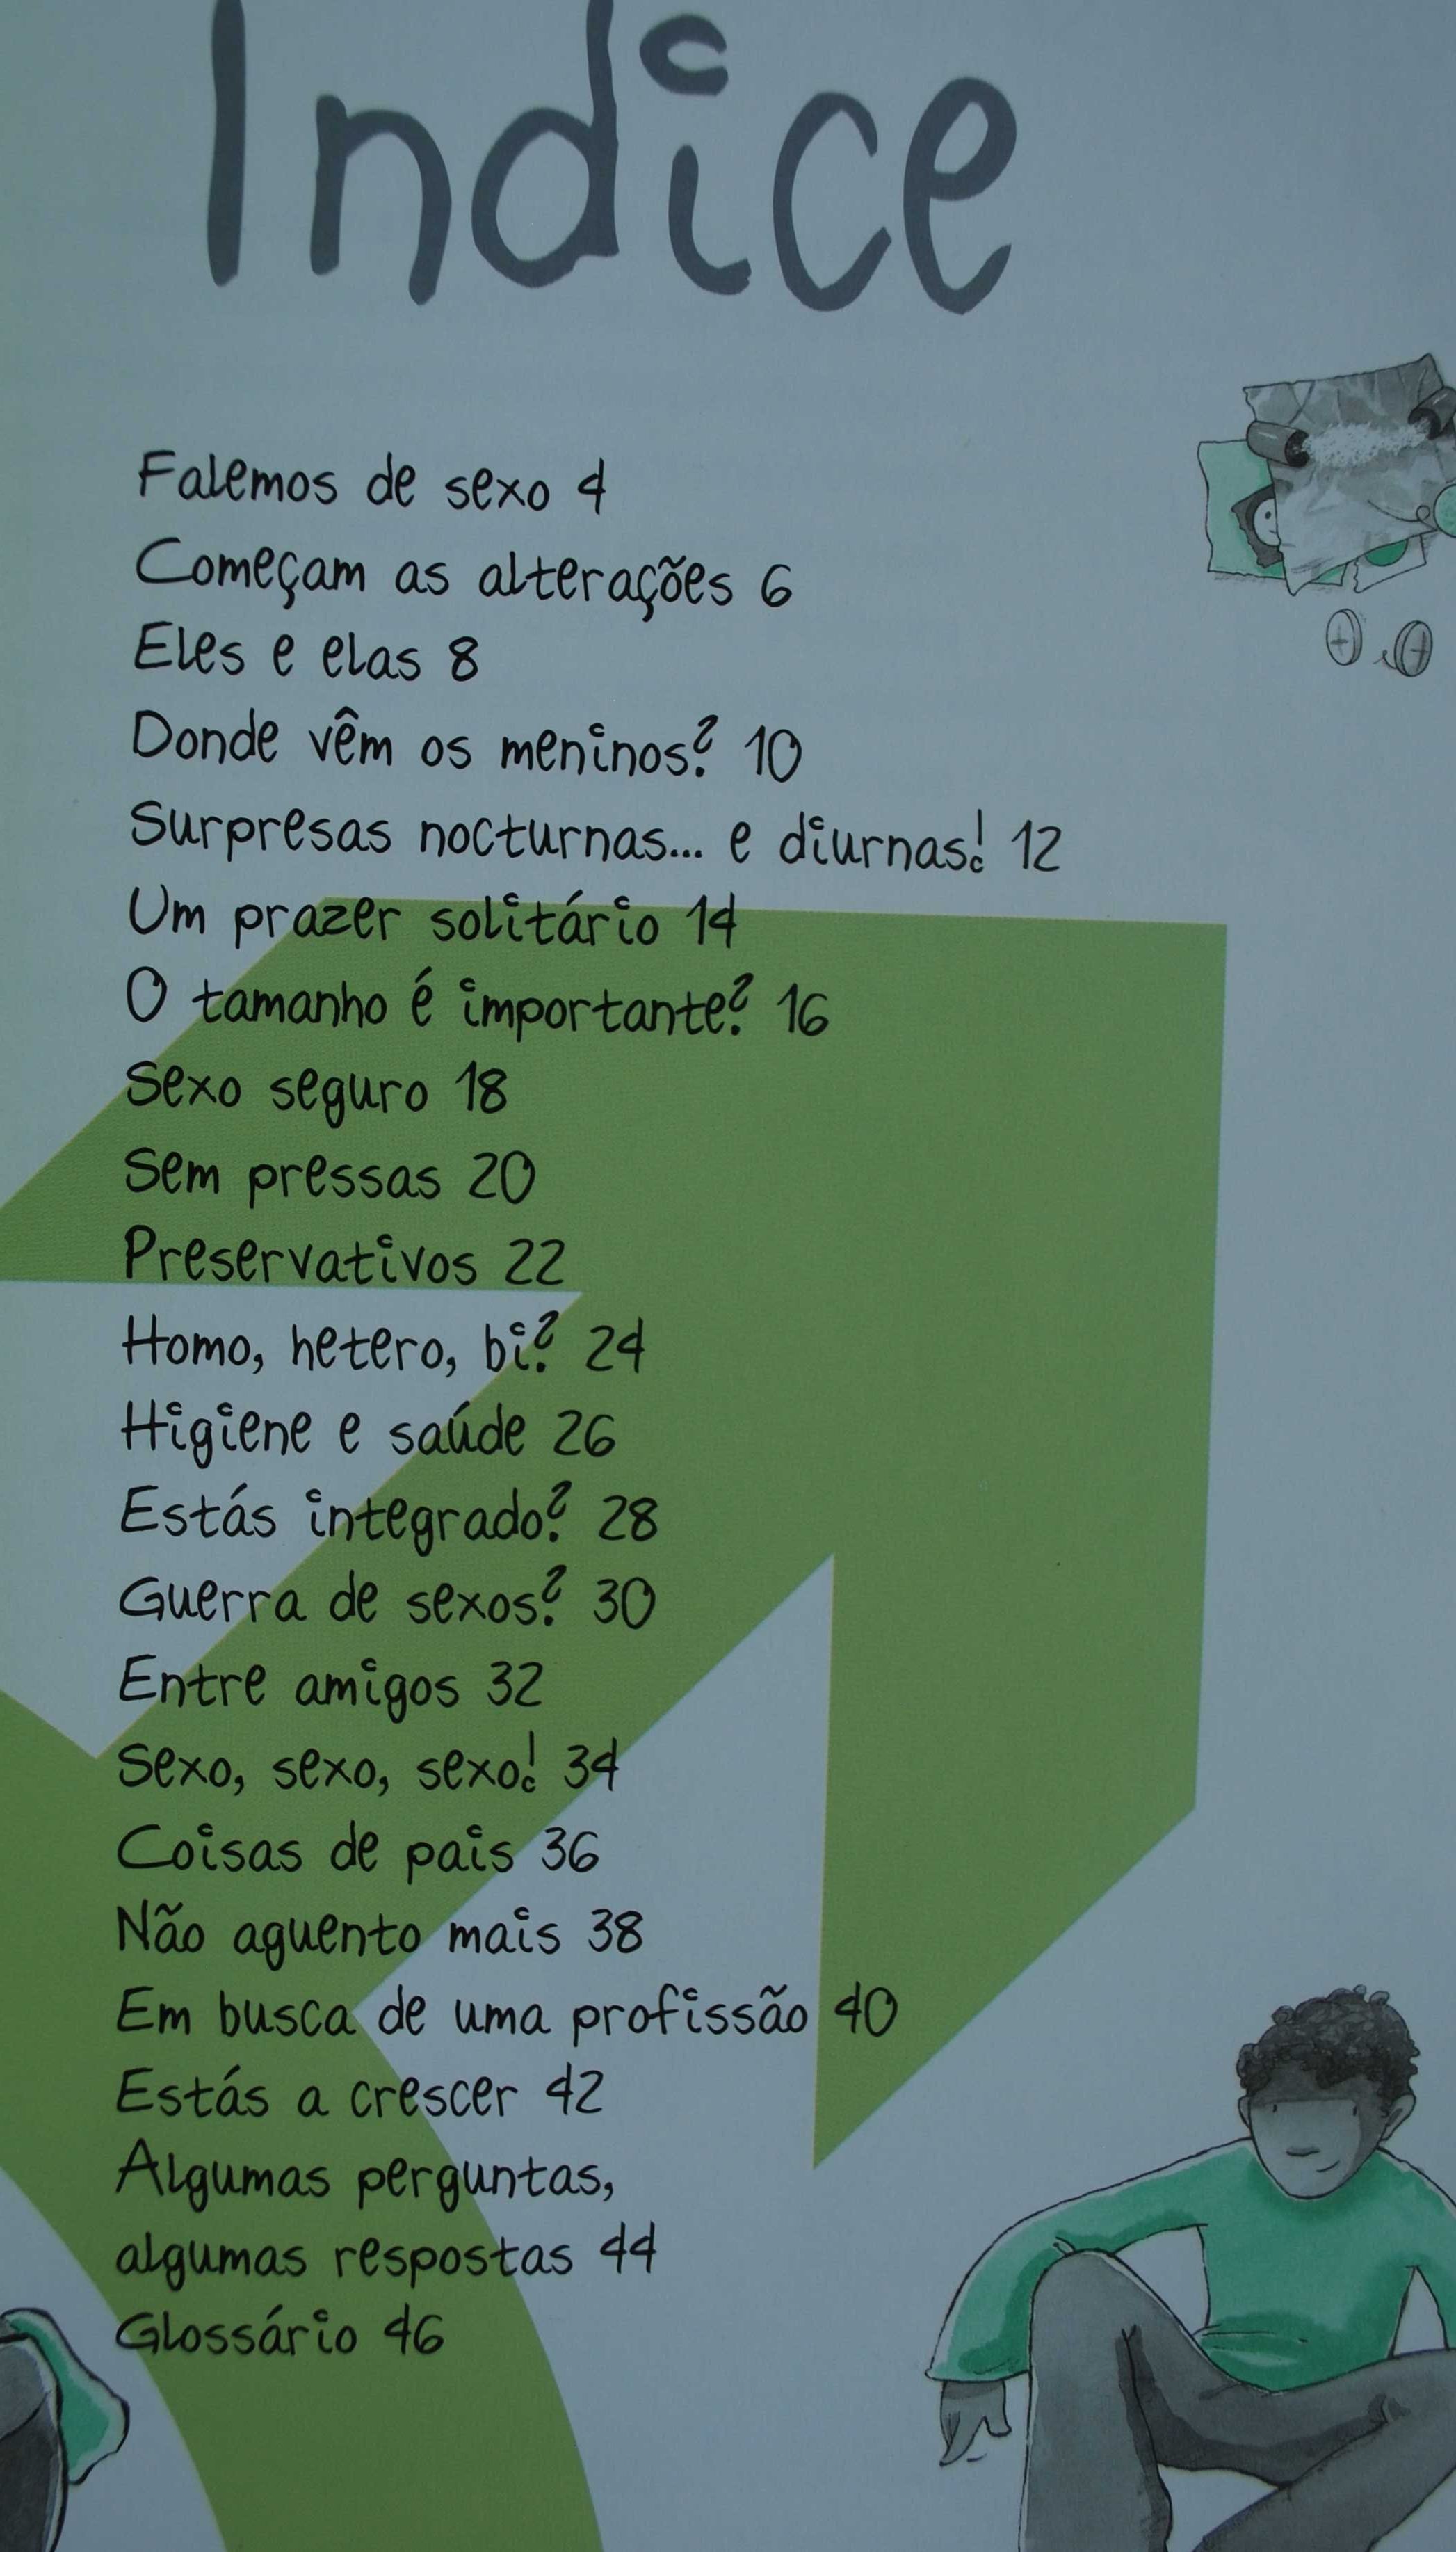 Indice
Falemos de sexo 4
Começam as alterações 6
Eles e elas 8
Donde vêm os meninos? 10
Surpresas nocturnas... e diurnas! 12
Um prazer solitário 14
O tamanho é importante? 16
Sexo seguro 18
Sem pressas 20
Preservativos 22
Homo, hetero, bi? 24
Higiene e saúde 26
Estás integrado? 28
Guerra de sexos? 30
Entre amigos 32
Sexo, sexo, sexo! 34
Coisas de pais 36
Não aguento mais 38
Em busca de uma profissão 40
Estás a crescer 42
Algumas perguntas,
algumas respostas 44
Glossário 46